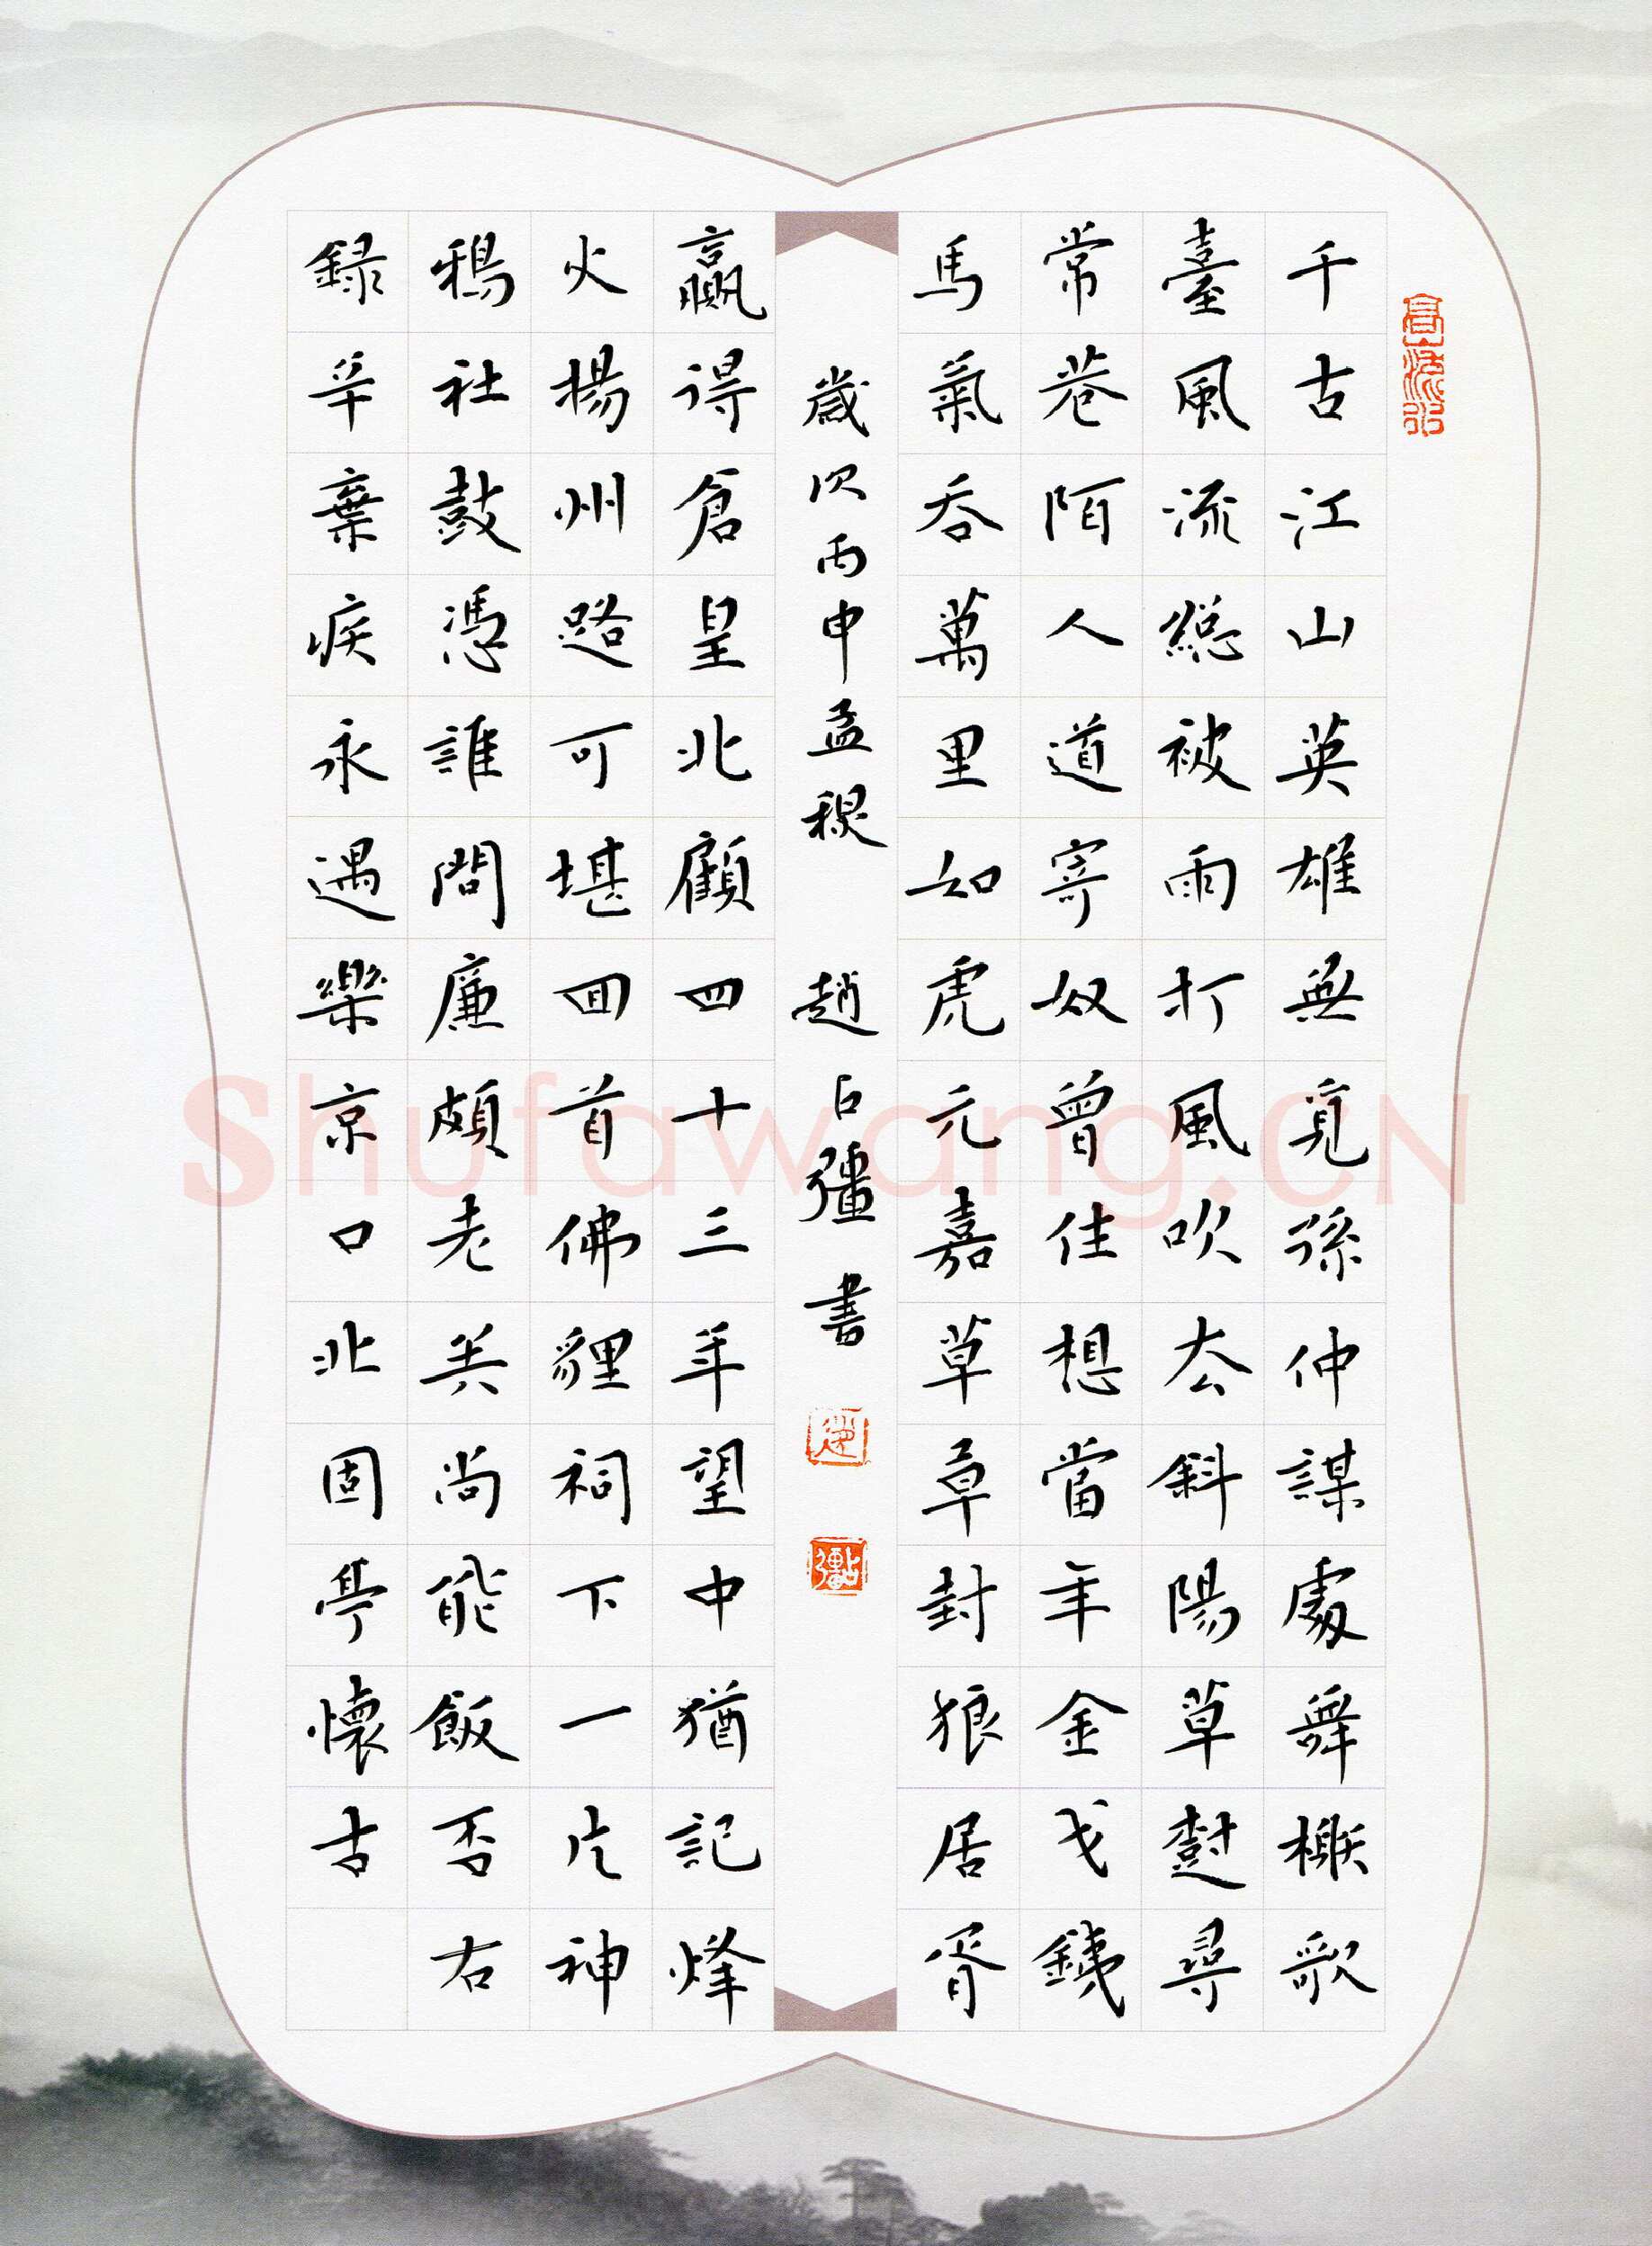 高山流水
千古江山英雄無覓孫仲謀處舞榭歌
臺風流總被雨打風吹去斜陽草樹尋
常巷陌人道寄奴曾住想當年金戈鐵
馬氣吞萬里如虎元嘉草草封狼居胥
歲次丙申孟秋 趙占彊書
贏得倉皇北顧四十三年望中猶記烽
火揚州路可堪回首佛貍祠下一片神
鴉社鼓憑誰問廉頗老矣尚能飯否右
錄辛棄疾永遇樂京口北固亭懷古
Shufawang.CN